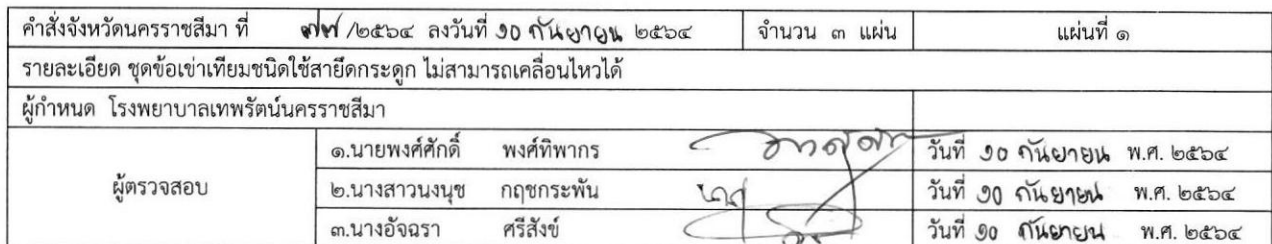 คำสั่งจังหวัดนครราชสีมา ที่ ๗๗/๒๕๖๔ ลงวันที่ ๑๐ กันยายน ๒๕๖๔ จำนวน ๓ แผ่น แผ่นที่ ๑
รายละเอียด ชุดข้อเข่าเทียมชนิดใช้สายยึดกระดูก ไม่สามารถเคลื่อนไหวได้
ผู้กำหนด โรงพยาบาลเทพรัตน์นครราชสีมา
๑.นายพงศ์ศักดิ์ พงศ์ทิพากร วันที่ ๑๐ กันยายน พ.ศ. ๒๕๖๔
ผู้ตรวจสอบ ๒.นางสาวนงนุช กฤชกระพัน วันที่ ๑๐ กันยายน พ.ศ. ๒๕๖๔
๓.นางอัจฉรา ศรีสังข์ วันที่ ๑๐ กันยายน พ.ศ. ๒๕๖๔